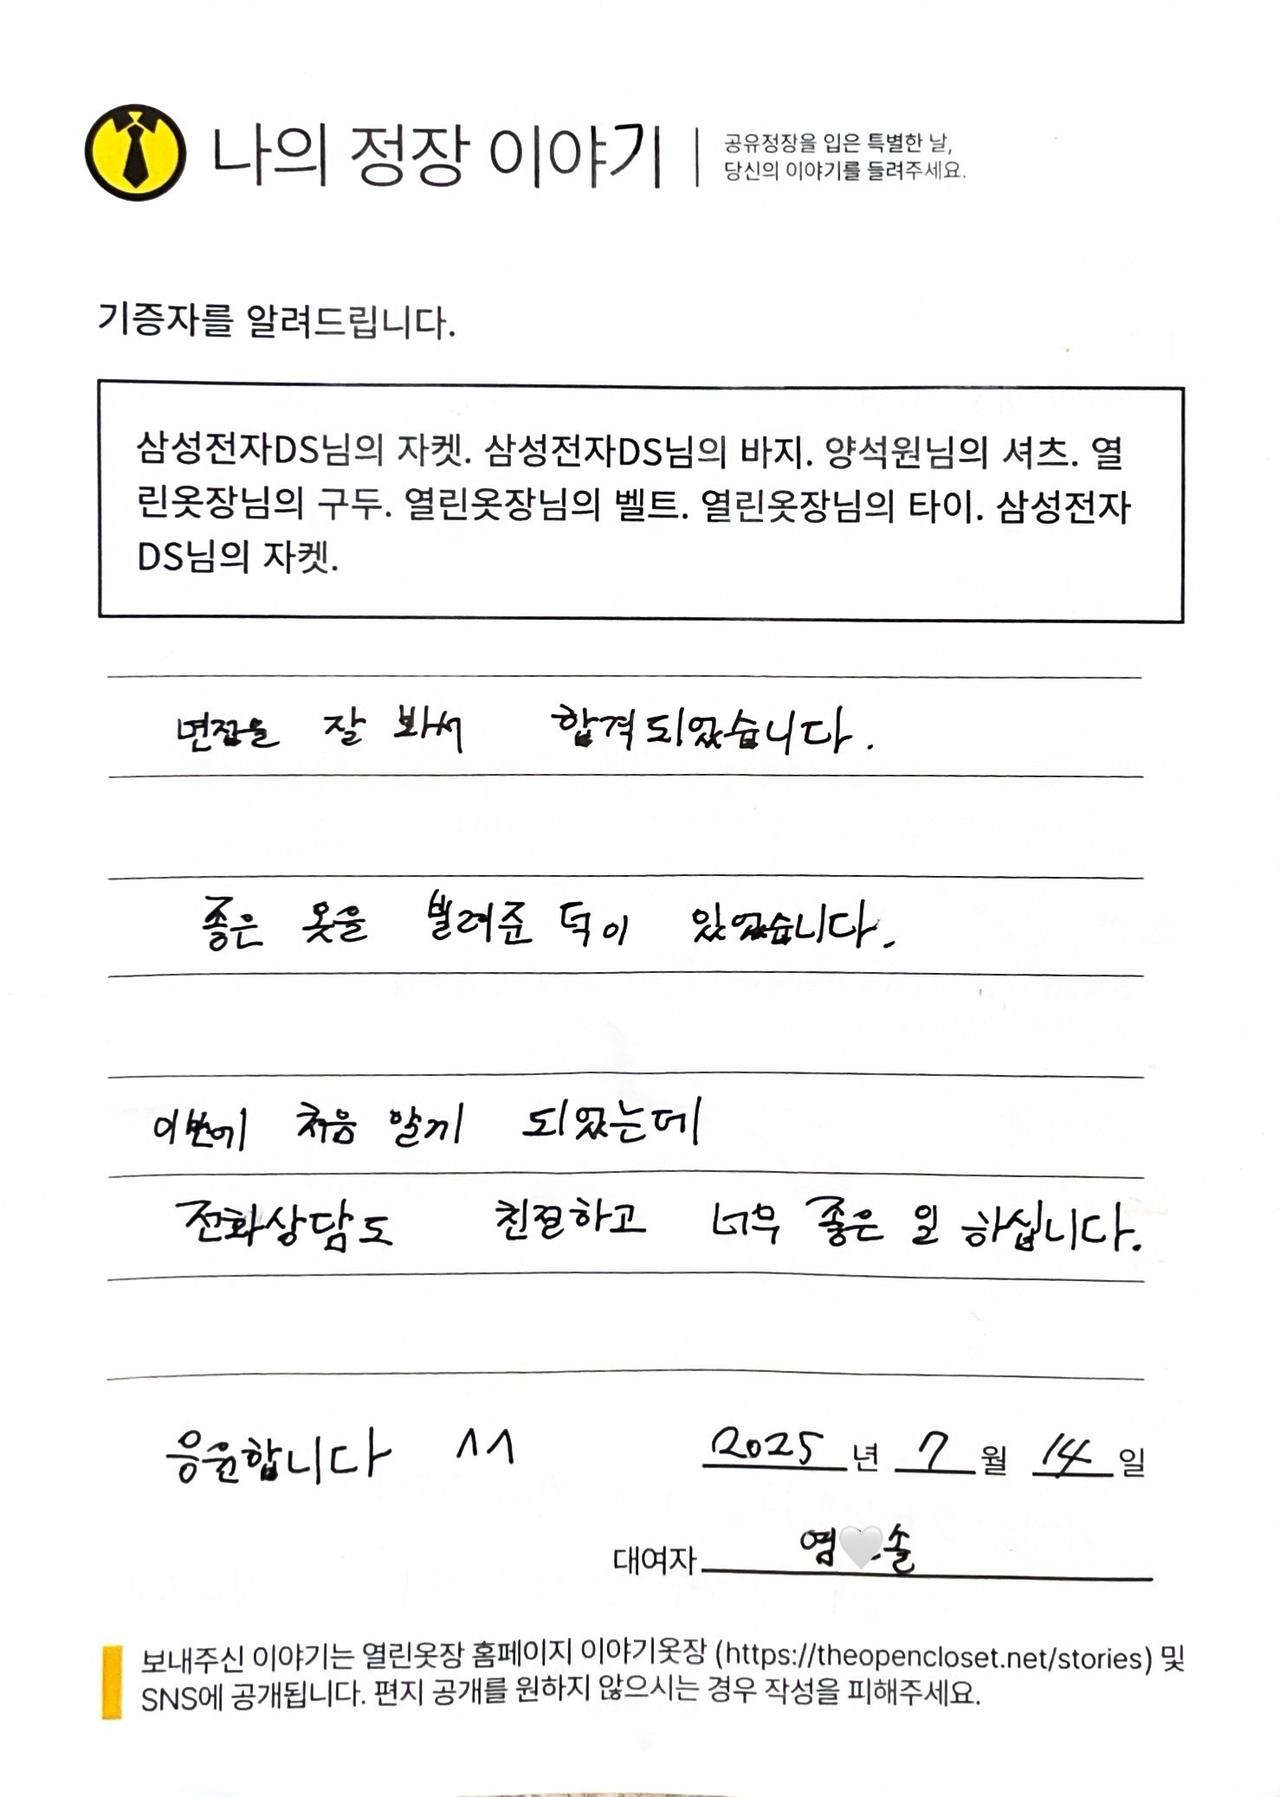 나의 정장 이야기
공유정장을 입은 특별한 날,
당신의 이야기를 들려주세요.
기증자를 알려드립니다.
삼성전자DS님의 자켓. 삼성전자DS님의 바지. 양석원님의 셔츠. 열
린옷장님의 구두. 열린옷장님의 벨트. 열린옷장님의 타이. 삼성전자
DS님의 자켓.
면접을 잘 봐서 합격되었습니다.
좋은 옷을 빌려준 덕이 있었습니다.
이번에 처음 알게 되었는데
전화상담도 친절하고 너무 좋은 일 하십니다.
응원합니다 ^^
2025년 7월 14일
대여자 염 솔
보내주신 이야기는 열린옷장 홈페이지 이야기옷장 (https://theopencloset.net/stories) 및
SNS에 공개됩니다. 편지 공개를 원하지 않으시는 경우 작성을 피해주세요.